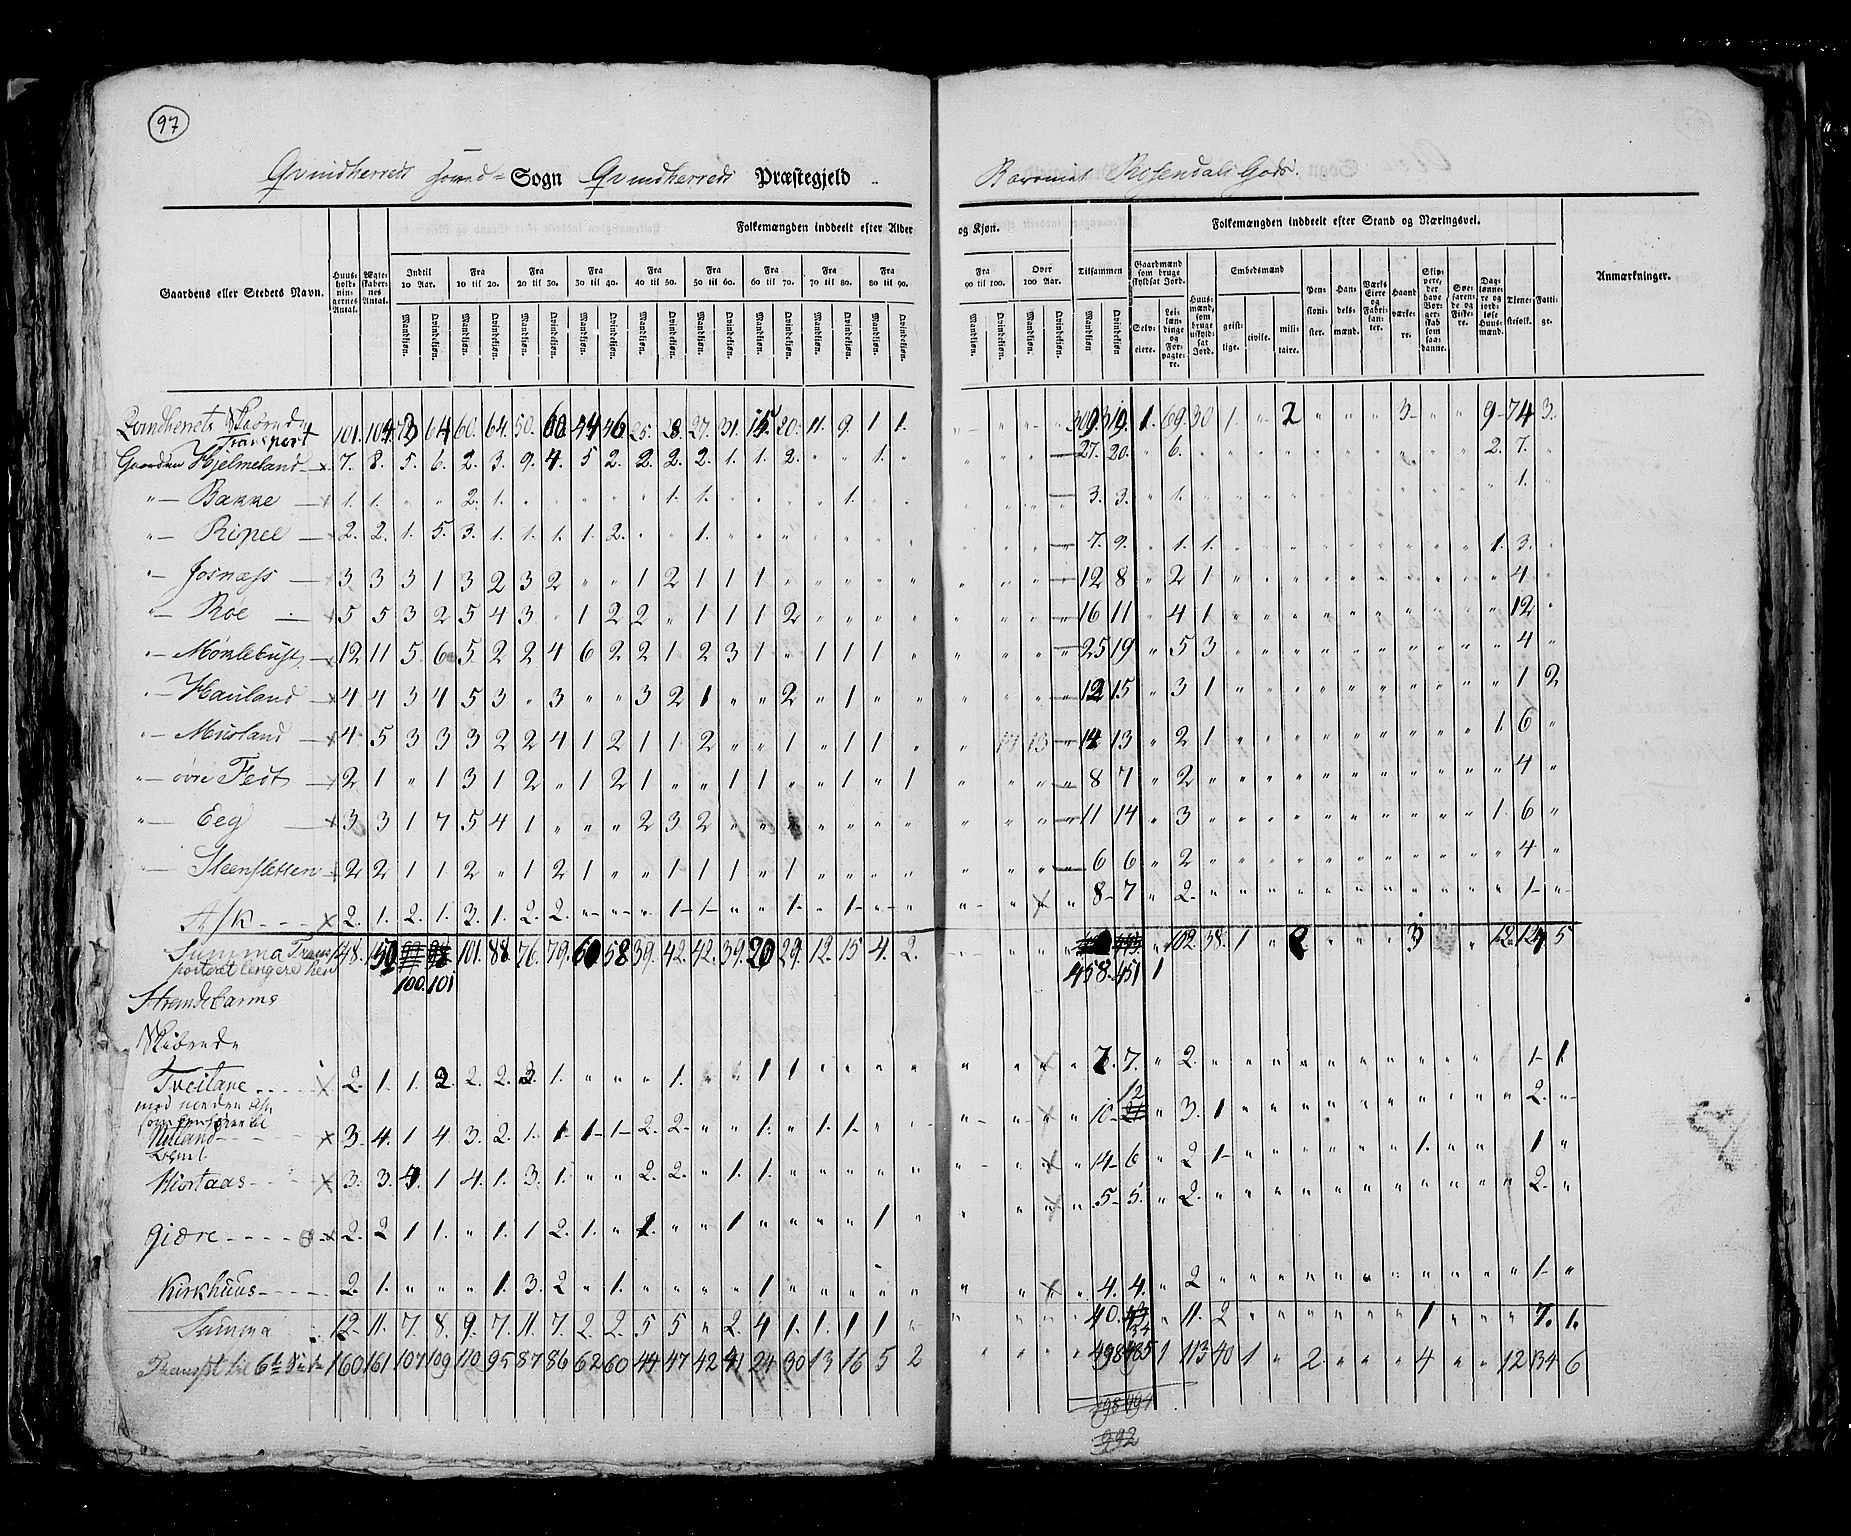 97
Qvindherreds Sogn Qvindherreds Præstegjeld
Baroniet Rosendals Gods.
Gaardens eller Stedets Navn.
Huusholdningernes Antal.
Ægteskabernes Antal.
Folkemængden inddeelt efter Alder og Kjøn.
Indtil 10 Aar. Fra 10 til 20. Fra 20 til 30. Fra 30 til 40. Fra 40 til 50. Fra 50 til 60. Fra 60 til 70. Fra 70 til 80. Fra 80 til 90. Fra 90 til 100. Over 100 Aar.
Mandkjøn. Qvindekjøn.
Tilsammen
Mandkjøn Qvindekjøn
Folkemængden inddeelt efter Stand og Næringsvei.
Gaardmænd som bruge skyldsat Jord.
Selveiere. Leilændinge og Forpagtere.
Huusmænd, som bruge uskyldsat Jord.
Embedsmænd
geistlige. civile. militaire.
Pensionister.
Handelsmænd.
Værks Eiere og Fabrikanter.
Haandværkere.
Skippere, der have Borgerskab som saadanne.
Søefarende og Fiskere.
Daglønnere og jordløse Huusmænd.
Tjenestefolk.
Fattige.
Anmærkninger.
Transport 101. 104. 73 64 60. 64. 50. 60. 44 46 25. 28. 27. 31. 15. 20. 11. 9. 1 1. 309. 319. 1. 69. 30 1. " 2 " " " 3- " " 9- 74 3.
Gaarden Hjelmeland 7. 8. 5. 6. 2. 3. 9. 4. 5 2. 2. 2. 2. 1. 1. 2. " " 1. " 27. 20. " 6. 2. 7.
"— Bakke 1. 1. " " 2. 1. 1. 1. 1. 3. 3. " 1. 1.
"— Ripel 2. 2. 1. 5. 3. 1. 1. 1. 1. 2. " " 1. 7. 9. " 1. 1. 1. 3.
"— Josnæss 3 3 3 1 3 2 3 2 " " 1 2 1 1 1 12 8 " 2 1 4
"— Roe 5 5 3 2 5 4 3 " 1 2 2 " 1 1 1 2 16 11 " 4 1 12
"— 12 11 5 6 5 2 2 4 6 2 2 1 2 3 1 " 1 1 1 25 19 " 5 3 4
"— Hauland 4 4 3 4 5 3 " 3 " " 3 2 1 " " 2 " 1 " 12 15 " 3 1 1 2
"— 4 5 3 3 3 2 2 4 1 2 1 1 2 " " 1 " 1 1 14 13 " 2 1 1. 6
"— øvre 2 1 " 1 3 1 2 " 1 2 1 " " 1 1 " " 1 " 1 8 7 " 2 4
"— Eeg 3 3 1 7 5 4 1 " " " 2 3 2 11 14 " 3 1. 6
"— Steensletten 2 2 1 1 2 " 1 2 1 " " 1 1 1 " 1 6 6 " 2 4
Ask 2. 1. 2. 1. 3. 1. 2. 2. 1 1 1. 1 8- 7 " 2. 1
Summa 148. 150 101. 88. 76. 79. 60 58 39. 42. 42. 39. 20 29. 12. 15 4. 2. " 102. 38. 1 " 2 3 12. 124 5
100. 101 458. 451 1
Strandebarms
Skibrede
Tveitane 2. 1. 1. 2. 2. 2. 3. 1. " " " 1. " " 1 1 7. 7. " 2. 1- 1
12
3- 4. 1 4 3. 2. 1. 1- 1- 1- 2. 2- " " 1. " 1. 1. 10- " 3. 1 2.
Hiortaas 3. 3. 4. 1 4. 1. 3. 1. " " 2. 2. " 1. 1. 14- 6 " 2 1- 1. 1
Giære 2. 2 1 1. " 1. 1 2. 1. " 1. " " 1 1 5- 5. " 2. 2.
Kirkhuus 2. 1. " " " 1. 3. 2 " 1. " " " " 1 4. 4. " 2 1-
Summa 12- 11. 7. 8. 9. 7. 11. 7. 2. 2. 5 5 " 2. 4 1. 1. 1 1 40. 11. 2 1 7. 1.
34
160 161 107 109 110 95 87 86 62 60 44 47 42 41 24 30 13 16 5 2 498 485 1 113 40 1 " 2 4 12 134 6